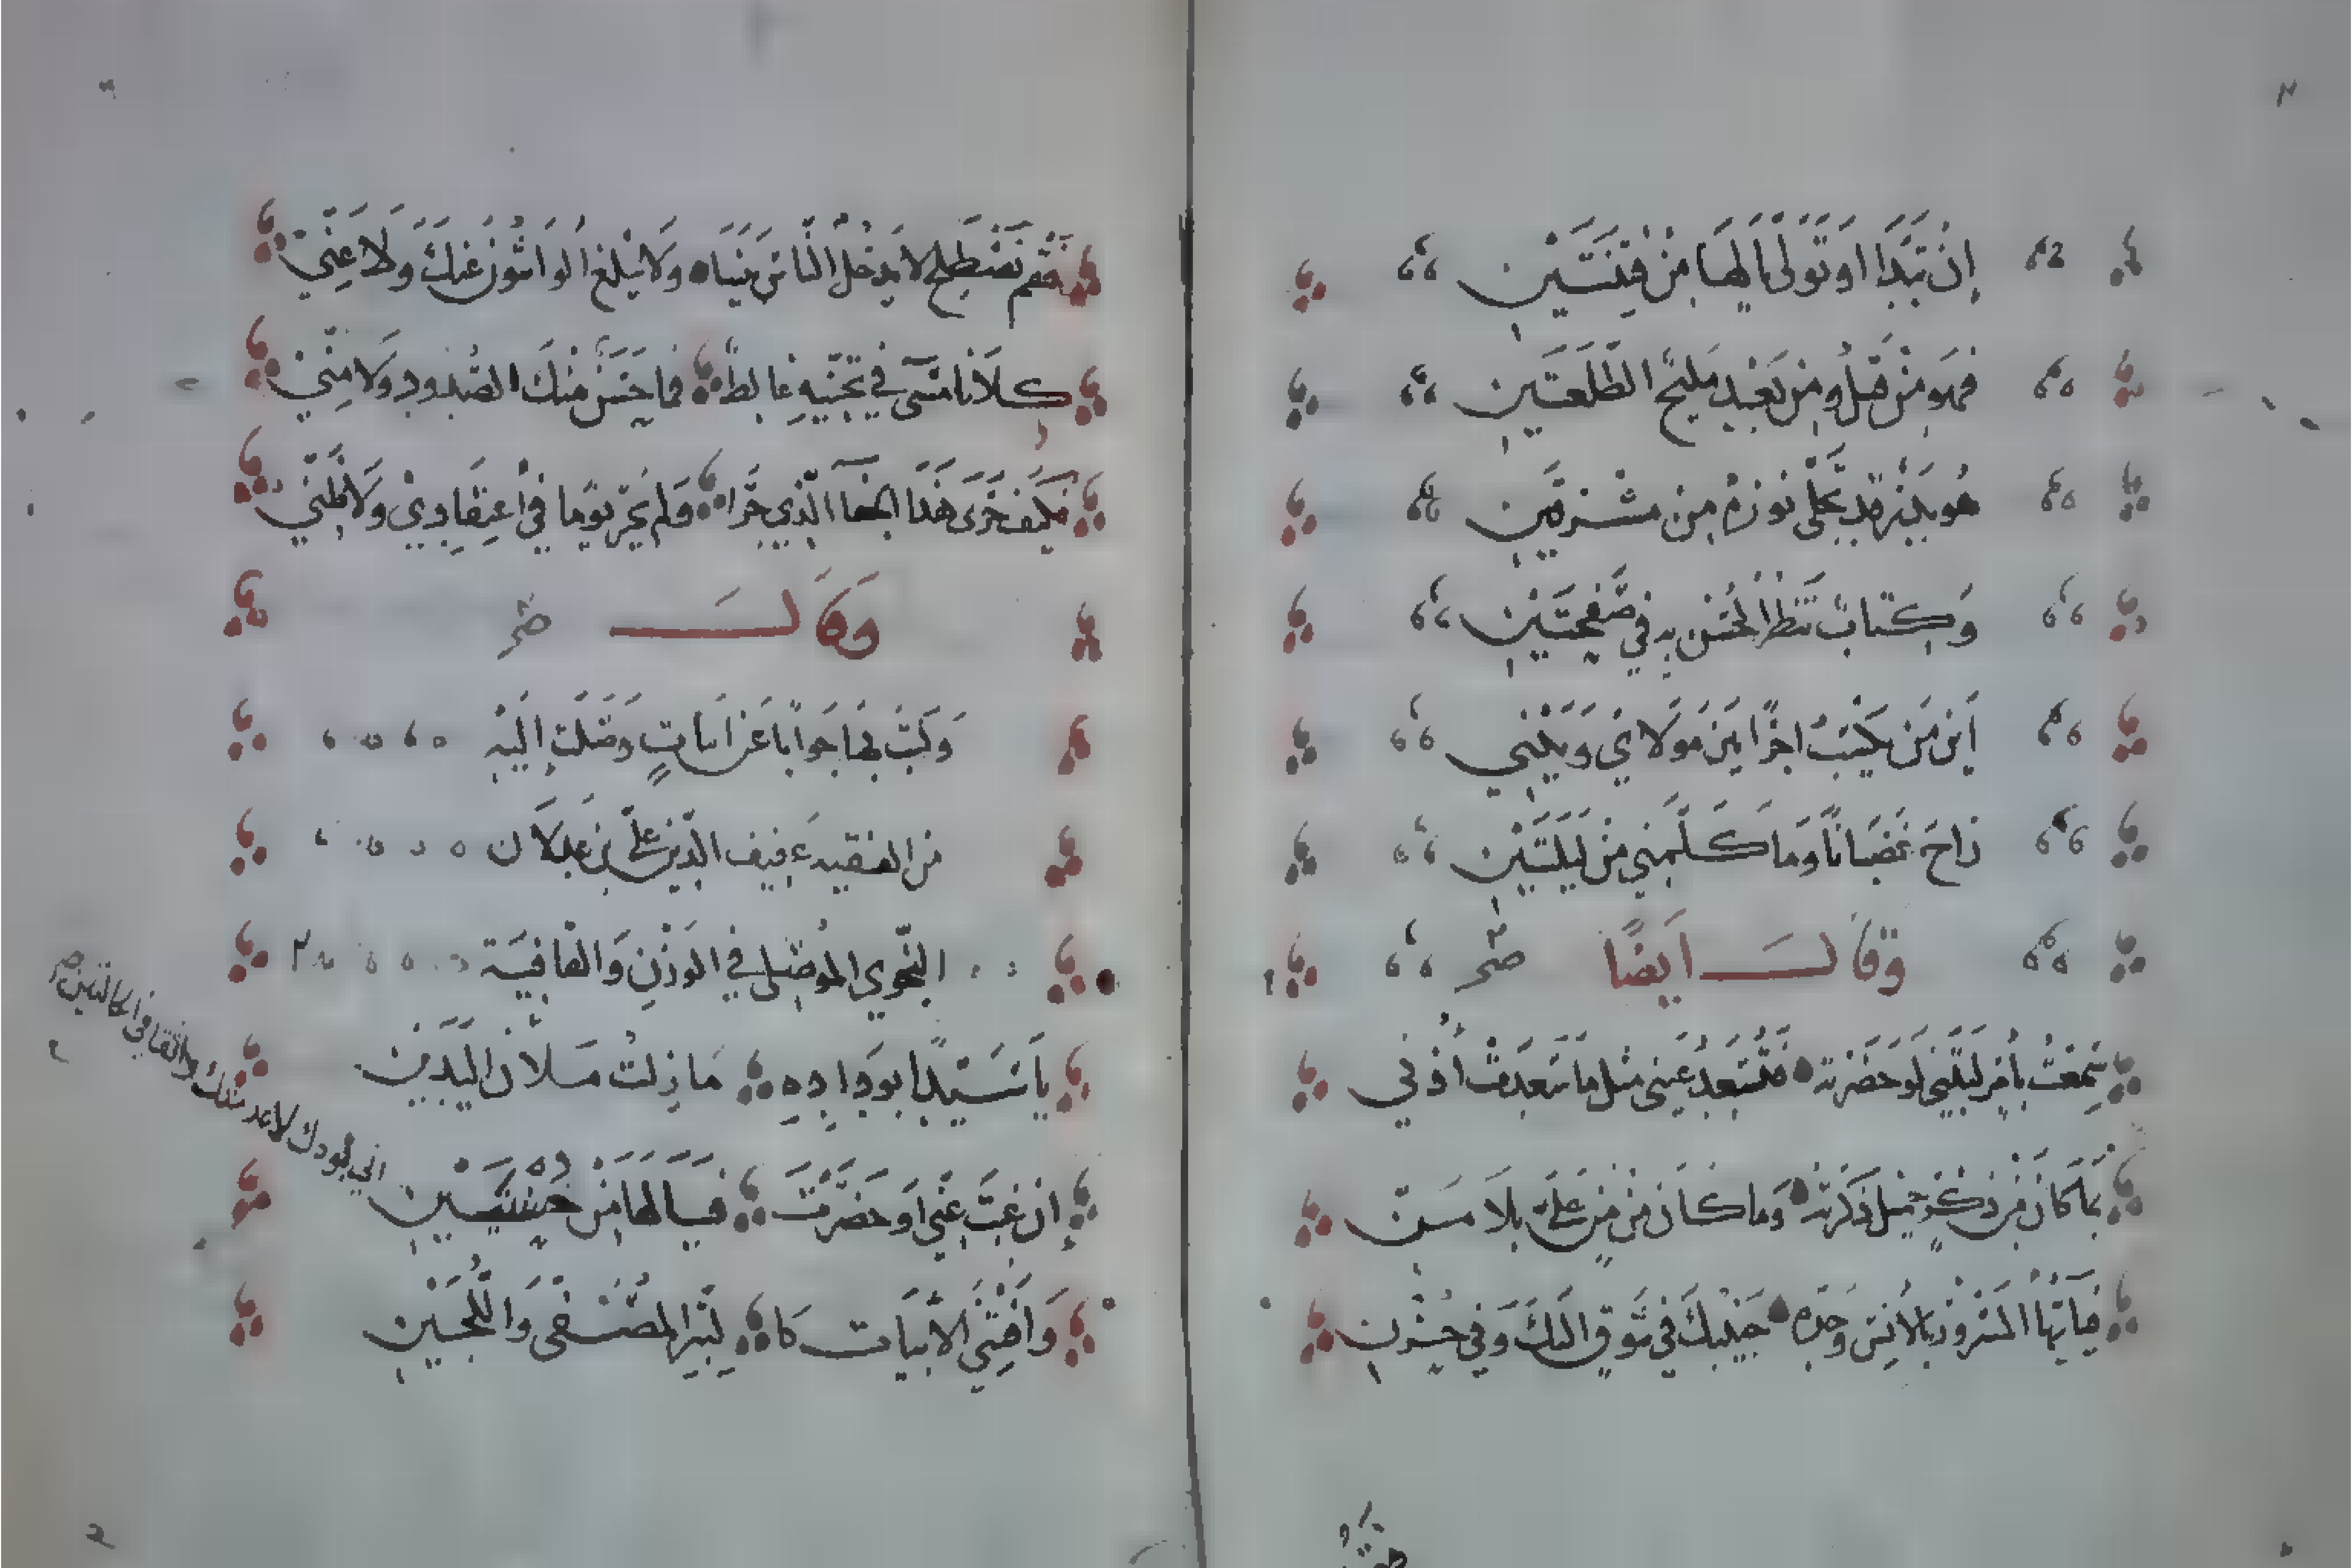 إِنْ تَبَدَّا أو تَوَلَّى يَا لَهَا مِنْ فِتْنَتَيْنِ
فهو مِنْ قَبْلُ ومِنْ بَعْدِ مَلِيحُ الطَّلْعَتَيْنِ
هُو بَدْرٌ قد تَجَلَّى نورُهُ مِنْ مشْرِقَيْنِ
وَكِتابٌ تَنظُرُ الْحُسْنَ بِهِ فِي صَفْحَتَيْنِ
أَيْنَ مَن يَكْتُبُ أجْرًا بَيْنَ مَولايَ وَبَيْنِي
رَاحَ غَضْبَاناً وَمَا كَلَّمَنِي مُنْ لَيْلَتَيْنِ
وقال أَيضًا
سَمِعْتُ بأمْرٍ لَيْتَنِي لَوْ حَضَرْتُهُ فَتُسْعَدُ عَيْنِي مثل مَا سَعِدَتْ أُذْنِي
بِمَا كَانَ مِنْ ذِكْرٍ جَمِيلٍ ذَكَرْتَهُ وَمَا كَانَ مِنْ مَنٍّ عَلَيَّ بِلَا مَنّ
فَيَا أَيُّهَا الْمَسْرُورُ بِالأُنْسِ وَحْدَهُ حَبِيبُكَ فِي شَوقٍ الَيْكَ وَفِي حُزْنِ
فَقُمْ نَصْطَلِحْ لا يَدْخُلُ النَّاسُ بَيْنَنَا وَلَا يَبْلُغ الْوَاشُونَ عَنْكَ وَلَا عَنِّي
كِلَانا مُسِيءٌ فِي تَجَنِّيهِ غَالِطٌ فما حَسَنٌ مِنْكَ الصُّدُودِ وَلَا مِنِّي
فَكَيفَ جَرَى هَذَا الجفآ الَّذِي جَرَا وَلم يَجْرِ يَومًا فِي أعتِقَادِي وَلَا ظَنِّي
وَقَالَ
وَكَتَبَ بِهَا جَوابًا عَنْ أبْيَاتٍ وَصَلَتْ إلَيْهِ
من الفقيه عفيف الدِّين عَلِيّ بن عَدْلَان
النَّحوي الْمُوصِلي فِي الْوَزْنِ وَالْقَافِيَة
يَا سَيّدًا بودَادِهِ مَا زِلتُ مَلْآن اليَدَيْنِ
إِنْ غِبْتَ عَنِّي أو حَضَرْتَ فيَا لَهَا مِنْ حُسْنَيَيْنِ
وَافَتْنِي الأبْيَات كا لتِّبْرِ الْمُصَفَّى وَاللُّجَيْنِ
اني بجودك لا عدمتك واثقا في الحالتين صح